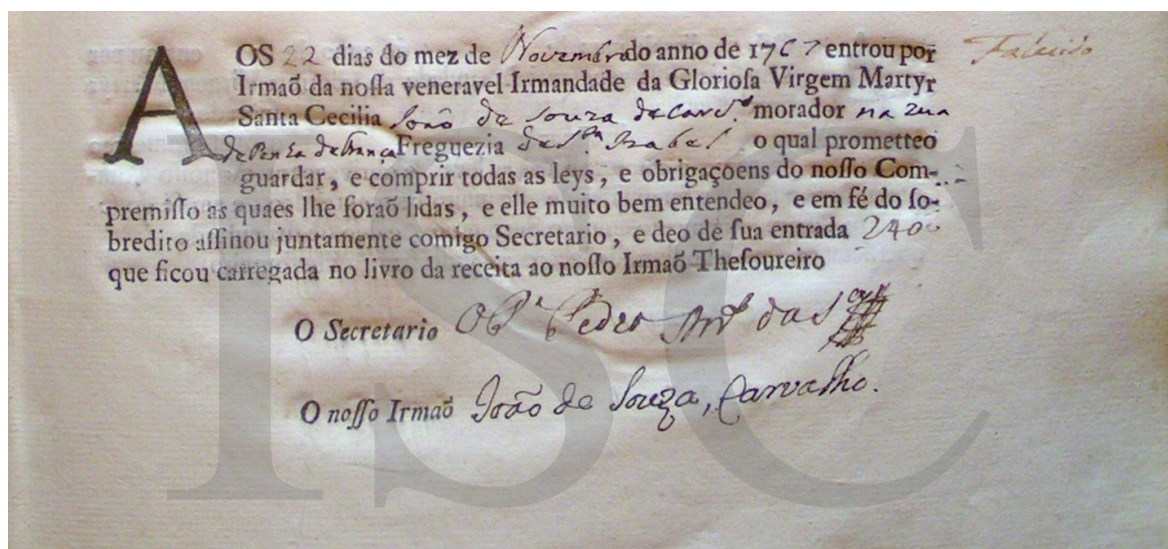 AOS 22 dias do mez de Novembro do anno de 1767 entrou por Falecido
Irmaõ da noſſa veneravel Irmandade da Glorioſa Virgem Martyr
Santa Cecilia João de Souza de Carv.º morador na rua
de Penha de França Freguezia de S.ta Izabel o qual prometteo
guardar, e comprir todas as leys, e obrigaçoens do noſſo Com-
premiſſo as quaes lhe foraõ lidas, e elle muito bem entendeo, e em fé do ſo-
bredito aſſinou juntamente comigo Secretario, e deo de ſua entrada 2400
que ficou carregada no livro da receita ao noſſo Irmaõ Theſoureiro
O Secretario O P.e Pedro da S.a
O noſſo Irmaõ João de Souza, Carvalho.
ISC